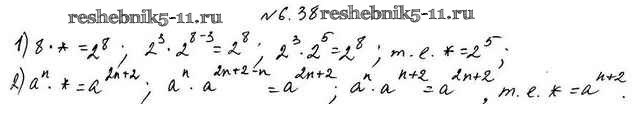 reshebnik5-11.ru №6.38 reshebnik5-11.ru
1) 8 · * = 2⁸ ; 2³ · 2⁸⁻³ = 2⁸ ; 2³ · 2⁵ = 2⁸ ; т. е. * = 2⁵ ;
2) aⁿ · * = a²ⁿ⁺² ; aⁿ · a²ⁿ⁺²⁻ⁿ = a²ⁿ⁺² ; aⁿ · aⁿ⁺² = a²ⁿ⁺² , т. е. * = aⁿ⁺² .